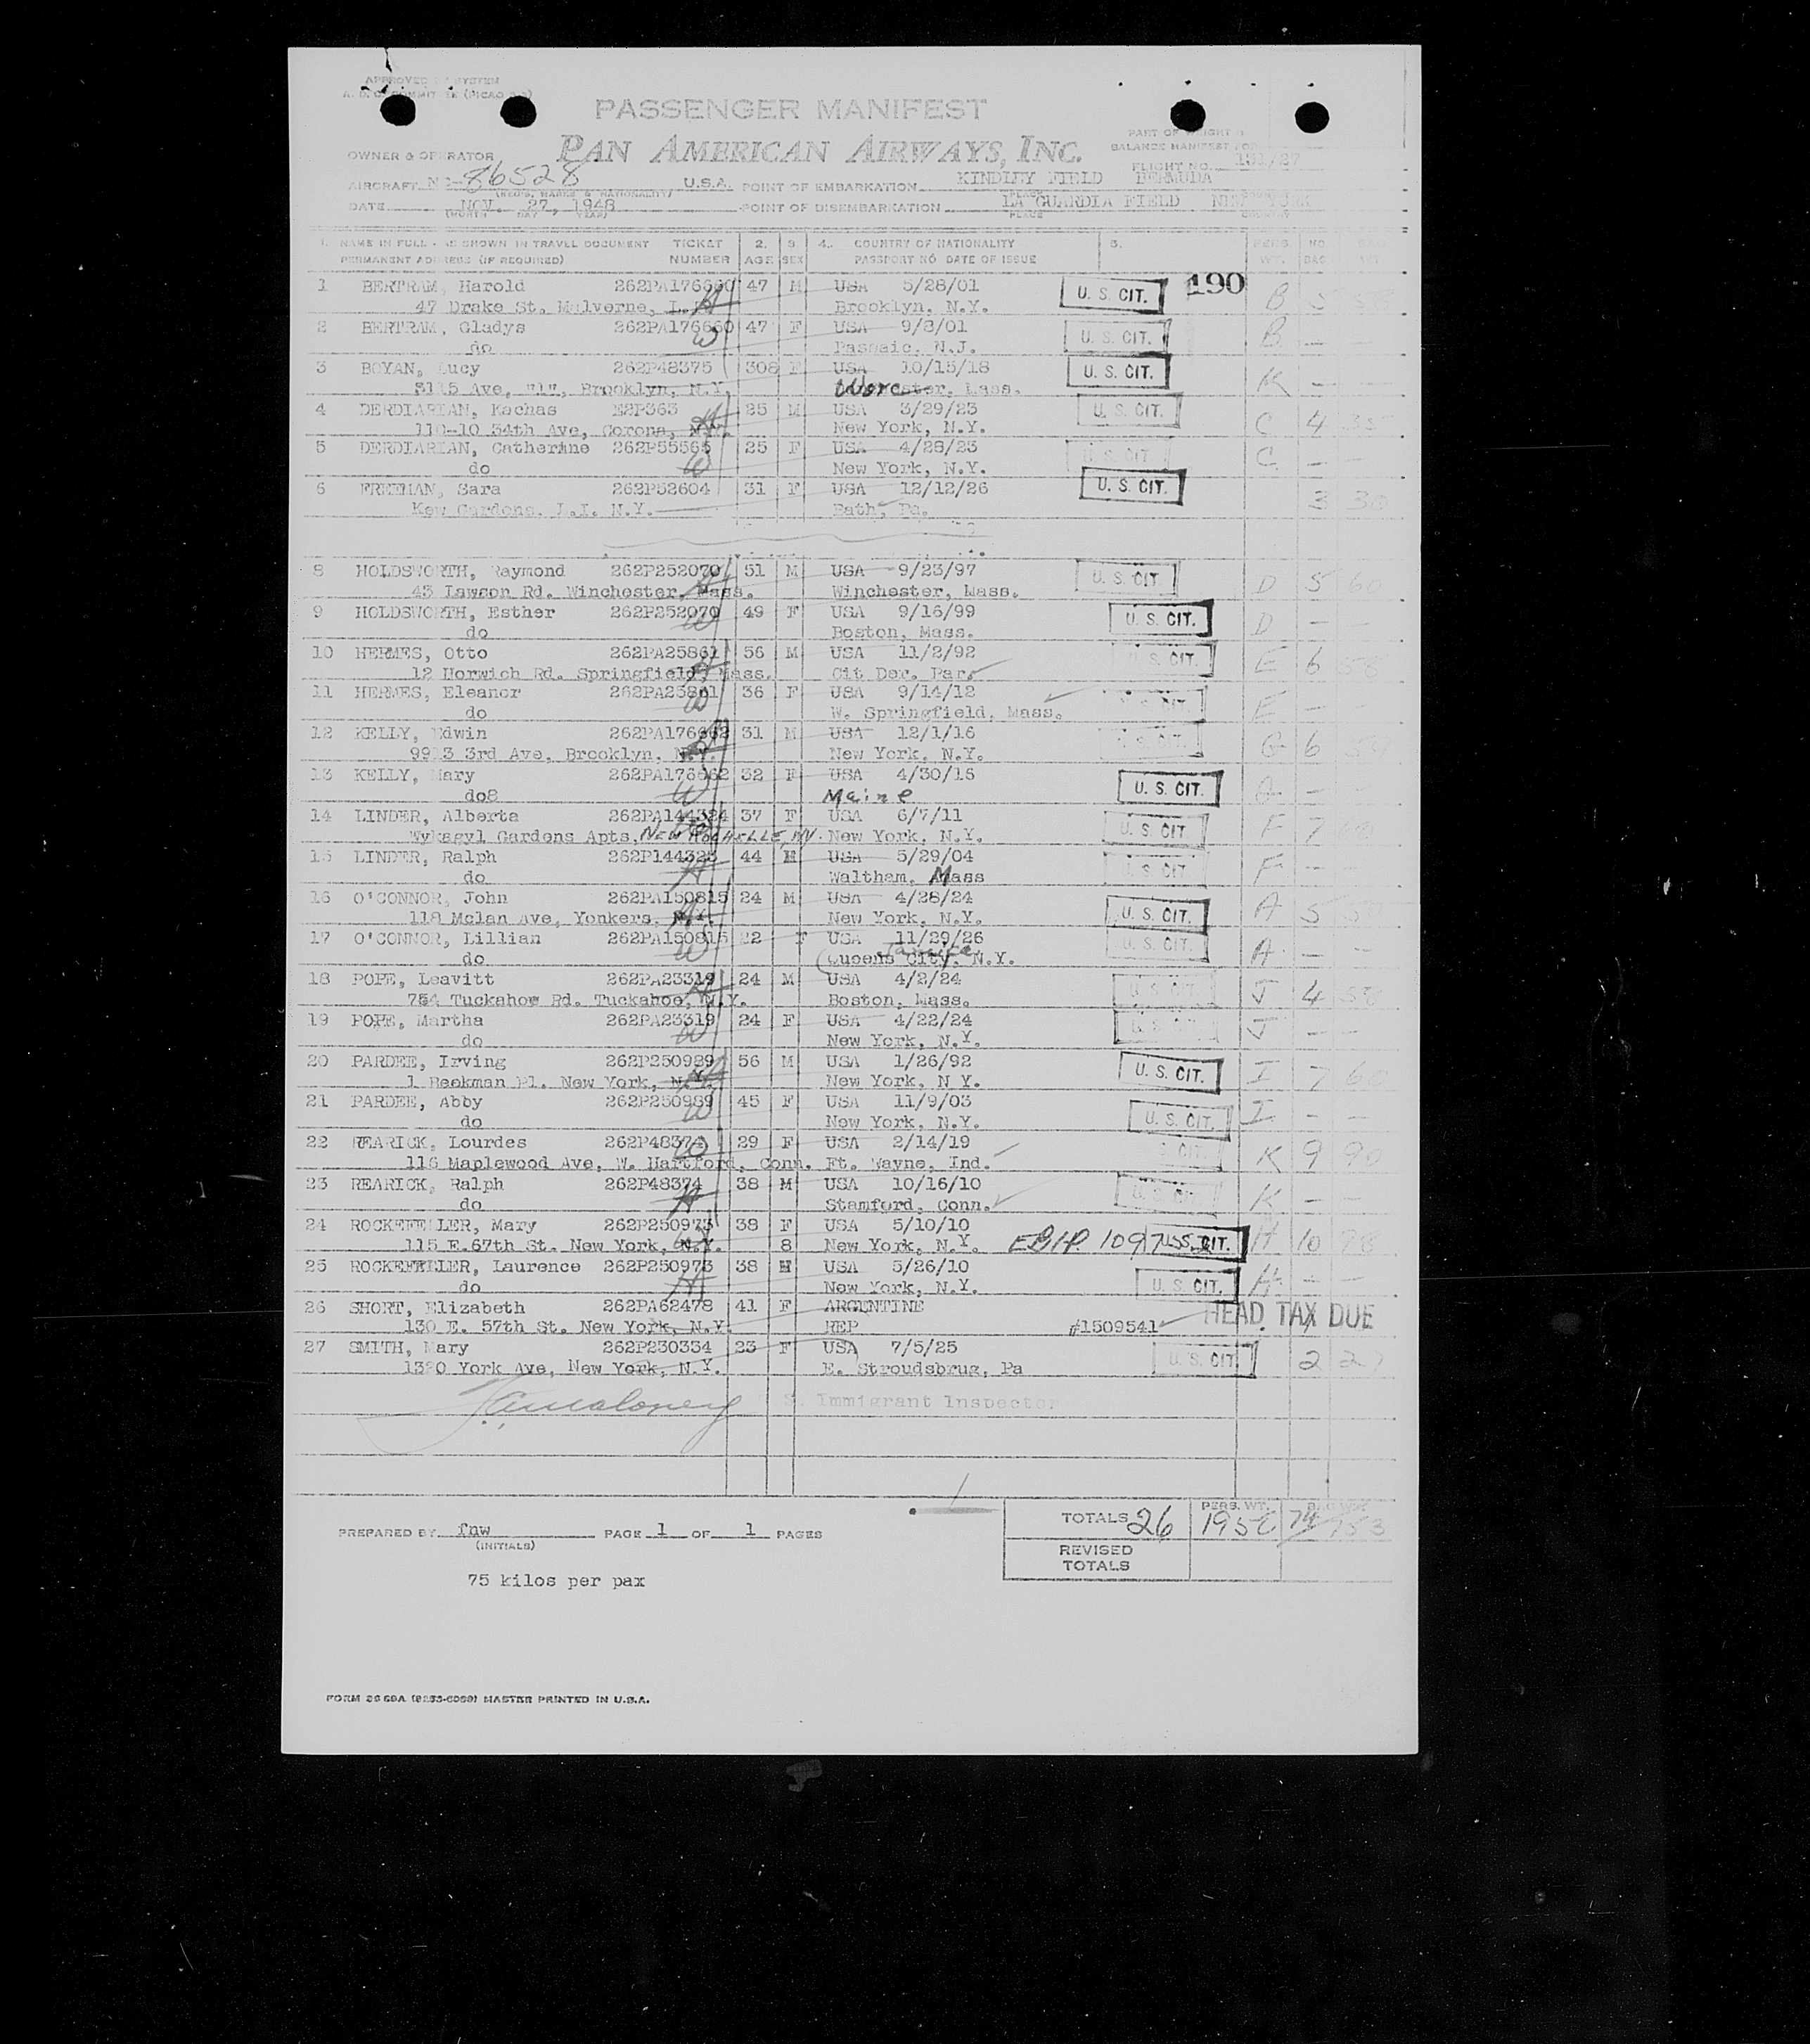 APPROVED BY SYSTEM
PASSENGER MANIFEST
PAN AMERICAN AIRWAYS, INC.
PART OF WEIGHT &
BALANCE MANIFEST FOR
OWNER & OPERATOR
FLIGHT NO. 131/27
AIRCRAFT NC-86528 U.S.A. POINT OF EMBARKATION KINDLEY FIELD BERMUDA
(REG'S. MARKS & NATIONALITY) PLACE
DATE NOV. 27, 1948 POINT OF DISEMBARKATION LA GUARDIA FIELD NEW YORK
(MONTH DAY YEAR) PLACE COUNTRY
1. NAME IN FULL - AS SHOWN IN TRAVEL DOCUMENT TICKET 2. 3 4. COUNTRY OF NATIONALITY 5. PERS. NO.
PERMANENT ADDRESS (IF REQUIRED) NUMBER AGE SEX PASSPORT NO DATE OF ISSUE WT. BAG
1 BERTRAM, Harold 262PA176660 47 M USA 5/28/01 U. S. CIT. 190 B 5
47 Drake St. Malverne, L.I. H Brooklyn, N.Y.
2 BERTRAM, Gladys 262PA176660 47 F USA 9/8/01 U. S. CIT. B — —
do W Passaic, N.J.
3 BOYAN, Lucy 262P48375 308 F USA 10/15/18 U. S. CIT. K — —
5115 Ave, "I", Brooklyn, N.Y. Worcester, Mass.
4 DERDIARIAN, Kachas E2P363 25 M USA 3/29/23 U. S. CIT. C 4
110-10 34th Ave, Corona, N.Y. H New York, N.Y.
5 DERDIARIAN, Catherine 262P55565 25 F USA 4/28/23 U. S. CIT. C — —
do W New York, N.Y.
6 FREEMAN, Sara 262P52604 31 F USA 12/12/26 U. S. CIT. 3 30
Kew Gardens, L.I. N.Y. Bath, Pa.
8 HOLDSWORTH, Raymond 262P252070 51 M USA 9/23/97 U. S. CIT. D 5 60
43 Lawson Rd. Winchester, Mass. H Winchester, Mass.
9 HOLDSWORTH, Esther 262P252070 49 F USA 9/16/99 U. S. CIT. D — —
do W Boston, Mass.
10 HERMES, Otto 262PA25861 56 M USA 11/2/92 U. S. CIT. E 6 58
12 Norwich Rd. Springfield, Mass. H Cit Der. Par.
11 HERMES, Eleanor 262PA25861 36 F USA 9/14/12 U. S. CIT. E — —
do W W. Springfield, Mass.
12 KELLY, Edwin 262PA176662 31 M USA 12/1/16 U. S. CIT. G 6
9923 3rd Ave, Brooklyn, N.Y. H New York, N.Y.
13 KELLY, Mary 262PA176662 32 F USA 4/30/15 U. S. CIT. G — —
do8 W Maine
14 LINDER, Alberta 262PA144324 37 F USA 6/7/11 U. S. CIT. F 7
Wykagyl Gardens Apts, NEW ROCHELLE, NY. New York, N.Y.
15 LINDER, Ralph 262P144325 44 M USA 5/29/04 U. S. CIT. F — —
do H Waltham, Mass
16 O'CONNOR, John 262PA150815 24 M USA 4/28/24 U. S. CIT. A 5
118 Mclan Ave, Yonkers, N.Y. H New York, N.Y.
17 O'CONNOR, Lillian 262PA150815 22 F USA 11/29/26 U. S. CIT. A — —
do W Queens City, N.Y. Jamaica
18 POPE, Leavitt 262PA23319 24 M USA 4/2/24 U. S. CIT. J 4 58
754 Tuckahow Rd. Tuckahoe, N.Y. H Boston, Mass.
19 POPE, Martha 262PA23319 24 F USA 4/22/24 U. S. CIT. J — —
do W New York, N.Y.
20 PARDEE, Irving 262P250989 56 M USA 1/26/92 U. S. CIT. I 7
1 Beekman Pl. New York, N.Y. H New York, N Y.
21 PARDEE, Abby 262P250989 45 F USA 11/9/03 U. S. CIT. I — —
do W New York, N.Y.
22 REARICK, Lourdes 262P48374 29 F USA 2/14/19 CIT. K 9 90
116 Maplewood Ave, W. Hartford, Conn. W Ft. Wayne, Ind.
23 REARICK, Ralph 262P48374 38 M USA 10/16/10 U. S. CIT. K — —
do H Stamford, Conn.
24 ROCKEFELLER, Mary 262P250973 38 F USA 5/10/10 U. S. CIT. H 10 98
115 E.67th St. New York, N.Y. W 8 New York, N.Y.
25 ROCKEFELLER, Laurence 262P250973 38 M USA 5/26/10 U. S. CIT. H — —
do H New York, N.Y.
26 SHORT, Elizabeth 262PA62478 41 F ARGUNTINE HEAD TAX DUE
130 E. 57th St. New York, N.Y. REP #1509541
27 SMITH, Mary 262P230334 23 F USA 7/5/25 U. S. CIT. 2
1320 York Ave, New York, N.Y. E. Stroudsbrug, Pa
Immigrant Inspector
PERS. WT.
TOTALS 26 1950 74
PREPARED BY fnw PAGE 1 OF 1 PAGES
(INITIALS)
REVISED
TOTALS
75 kilos per pax
MASTER PRINTED IN U.S.A.